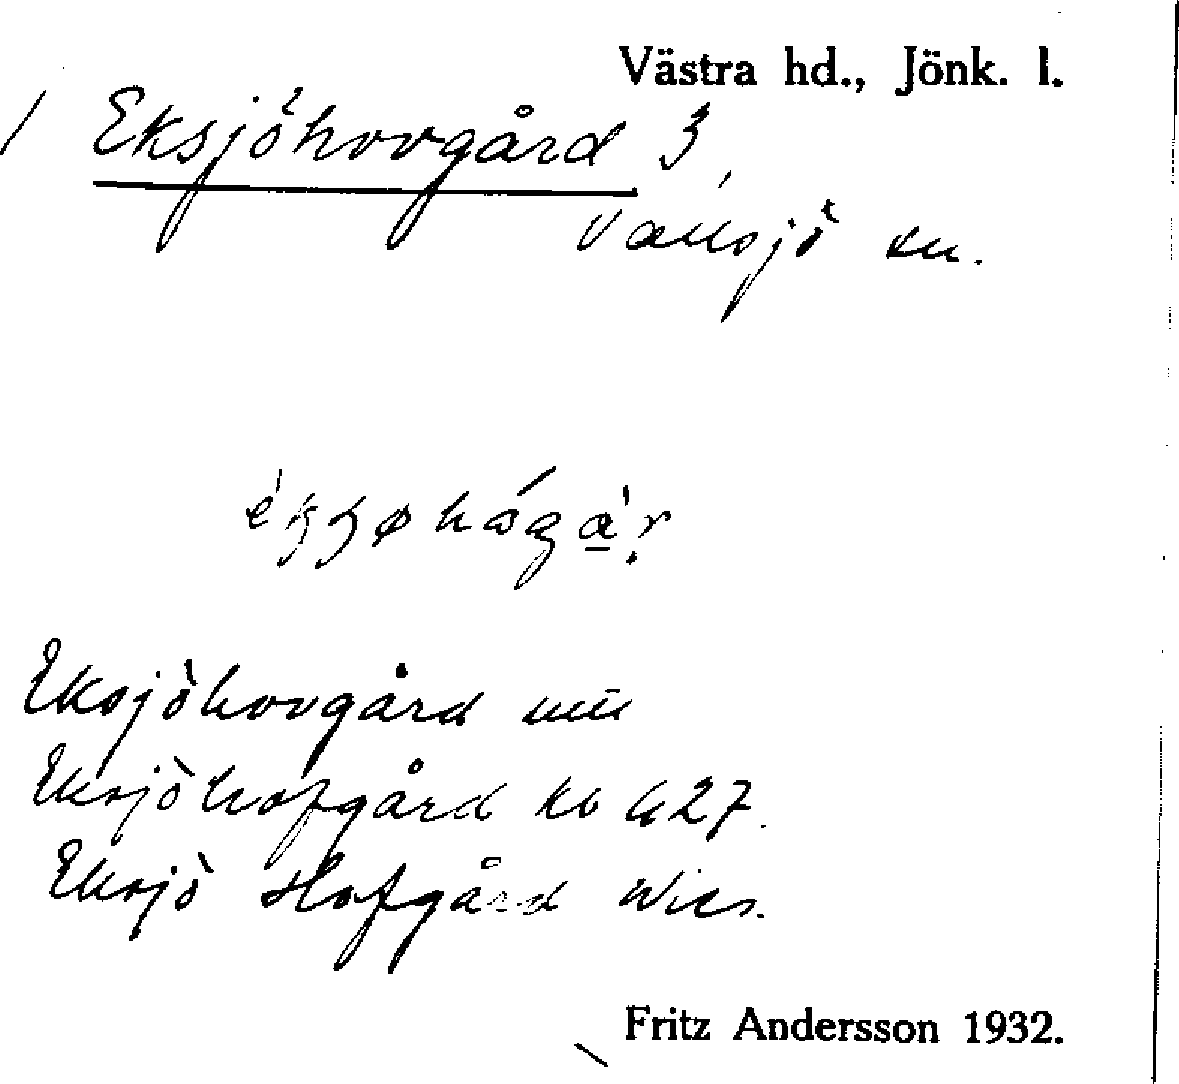 Västra hd., Jönk. l.
Eksjöhovgård 3
Vallsjö sn.
Eksjöhovgård
Eksjöhofgård kb 427.
Eksjö Hofgård Wies.
Fritz Andersson 1932.